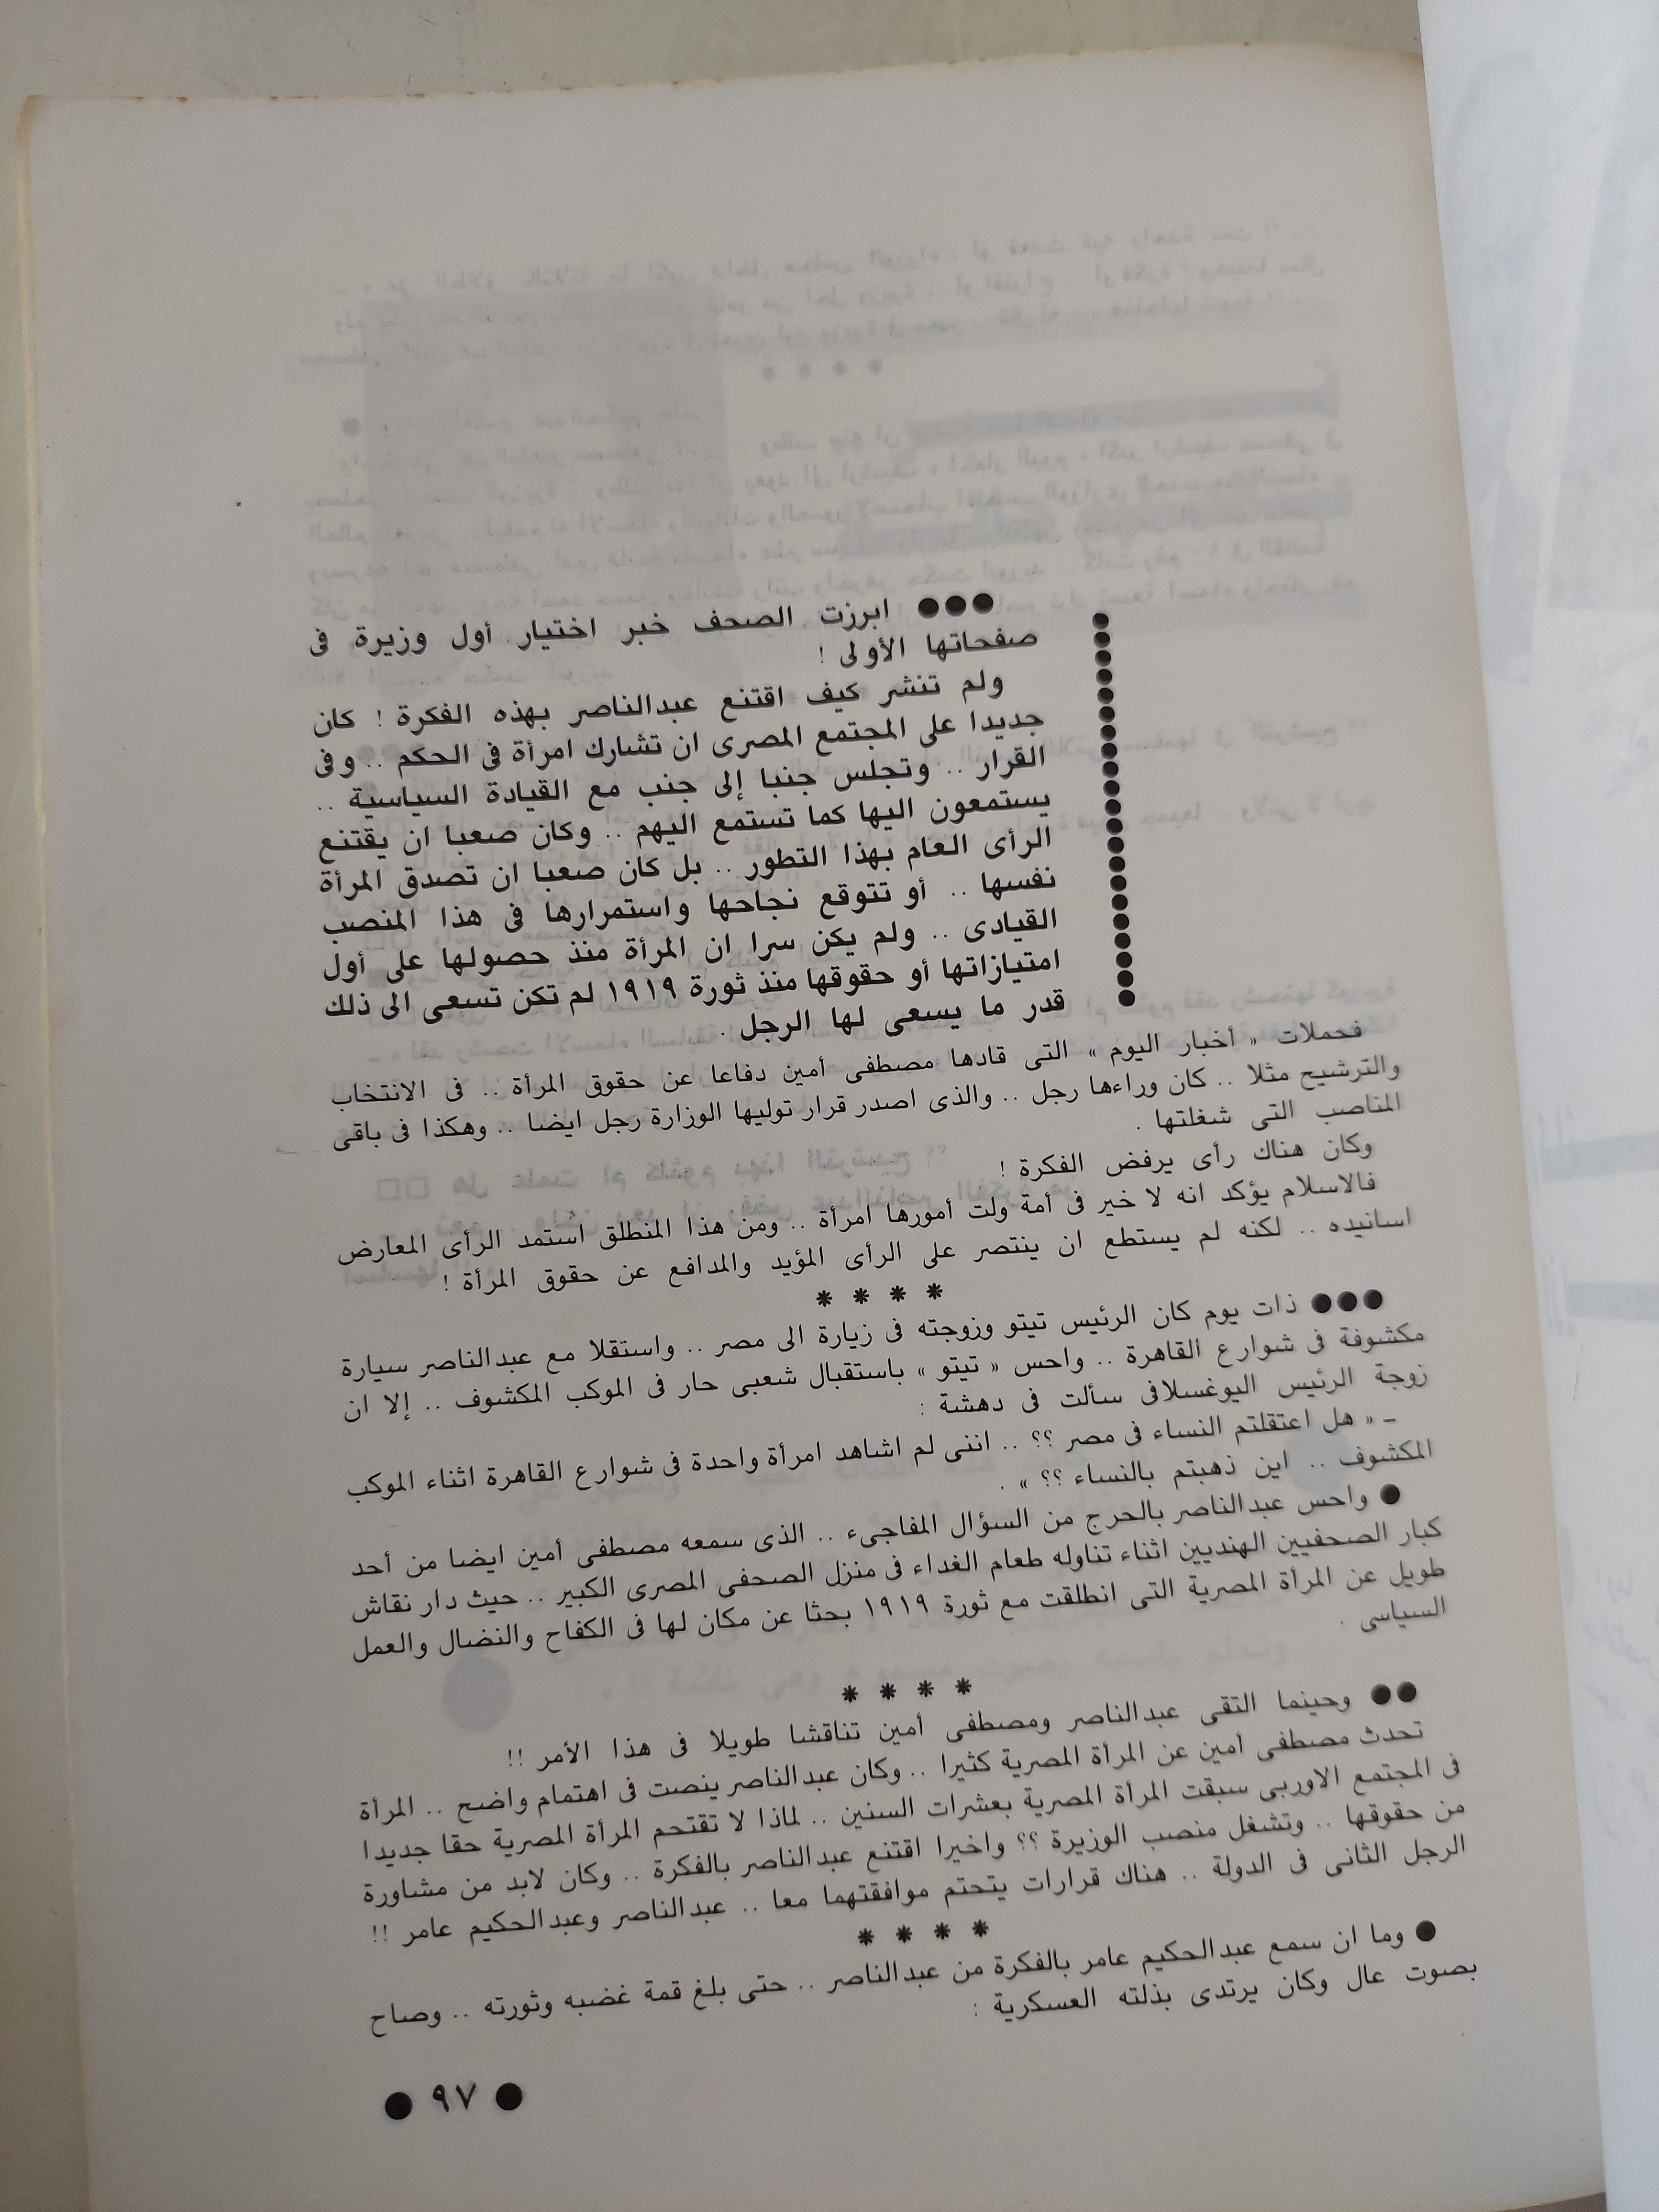 ●●● ابرزت الصحف خبر اختيار أول وزيرة فى
صفحاتها الأولى !
ولم تنشر كيف اقتنع عبدالناصر بهذه الفكرة ! كان
جديدا على المجتمع المصرى ان تشارك امرأة فى الحكم .. وفى
القرار .. وتجلس جنبا إلى جنب مع القيادة السياسية ..
يستمعون اليها كما تستمع اليهم .. وكان صعبا ان يقتنع
الرأى العام بهذا التطور .. بل كان صعبا ان تصدق المرأة
نفسها .. أو تتوقع نجاحها واستمرارها فى هذا المنصب
القيادى .. ولم يكن سرا ان المرأة منذ حصولها على أول
امتيازاتها أو حقوقها منذ ثورة ١٩١٩ لم تكن تسعى الى ذلك
قدر ما يسعى لها الرجل .
فحملات « أخبار اليوم » التى قادها مصطفى أمين دفاعا عن حقوق المرأة .. فى الانتخاب
والترشيح مثلا .. كان وراءها رجل .. والذى اصدر قرار توليها الوزارة رجل ايضا .. وهكذا فى باقى
المناصب التى شغلتها .
وكان هناك رأى يرفض الفكرة !
فالاسلام يؤكد انه لا خير فى أمة ولت أمورها امرأة .. ومن هذا المنطلق استمد الرأى المعارض
اسانيده .. لكنه لم يستطع ان ينتصر على الرأى المؤيد والمدافع عن حقوق المرأة !
* * * *
●●● ذات يوم كان الرئيس تيتو وزوجته فى زيارة الى مصر .. واستقلا مع عبدالناصر سيارة
مكشوفة فى شوارع القاهرة .. واحس « تيتو » باستقبال شعبى حار فى الموكب المكشوف .. إلا ان
زوجة الرئيس اليوغسلافى سألت فى دهشة :
– « هل اعتقلتم النساء فى مصر ؟؟ .. اننى لم اشاهد امرأة واحدة فى شوارع القاهرة اثناء الموكب
المكشوف .. اين ذهبتم بالنساء ؟؟ » .
● واحس عبدالناصر بالحرج من السؤال المفاجىء .. الذى سمعه مصطفى أمين ايضا من أحد
كبار الصحفيين الهنديين اثناء تناوله طعام الغداء فى منزل الصحفى المصرى الكبير .. حيث دار نقاش
طويل عن المرأة المصرية التى انطلقت مع ثورة ١٩١٩ بحثا عن مكان لها فى الكفاح والنضال والعمل
السياسى .
* * * *
●● وحينما التقى عبدالناصر ومصطفى أمين تناقشا طويلا فى هذا الأمر !!
تحدث مصطفى أمين عن المرأة المصرية كثيرا .. وكان عبدالناصر ينصت فى اهتمام واضح .. المرأة
فى المجتمع الاوربى سبقت المرأة المصرية بعشرات السنين .. لماذا لا تقتحم المرأة المصرية حقا جديدا
من حقوقها .. وتشغل منصب الوزيرة ؟؟ واخيرا اقتنع عبدالناصر بالفكرة .. وكان لابد من مشاورة
الرجل الثانى فى الدولة .. هناك قرارات يتحتم موافقتهما معا .. عبدالناصر وعبدالحكيم عامر !!
* * * *
● وما ان سمع عبدالحكيم عامر بالفكرة من عبدالناصر .. حتى بلغ قمة غضبه وثورته .. وصاح
بصوت عال وكان يرتدى بذلته العسكرية :
● ٩٧ ●